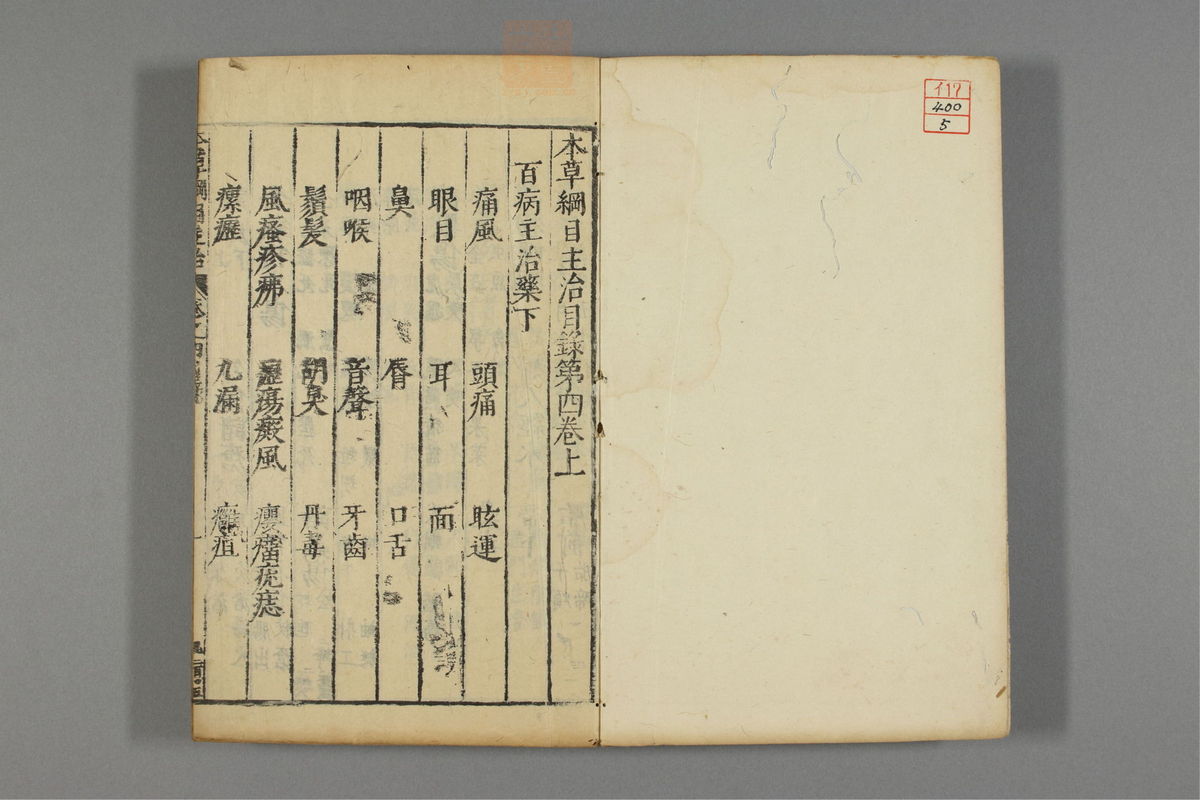 117
400
5
本草綱目主治目錄第四卷上
百病主治藥下
痛風 頭痛 眩運
眼目 耳 面
鼻 脣 口舌
咽喉 音聲 牙齒
鬚髮 胡臭 丹毒
風瘙疹疿 癧瘍癜風 癭瘤疣痣
瘰癧 九漏 癰疽
本草綱目主治 卷之四